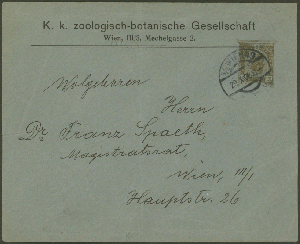 K. k. zoologisch-botanische Gesellschaft
Wien, III/3, Mechelgasse 2.
Wolgeboren
Herrn
Dr Franz Spaeth,
Magistratsrat,
Wien, III/1
Hauptstr. 26